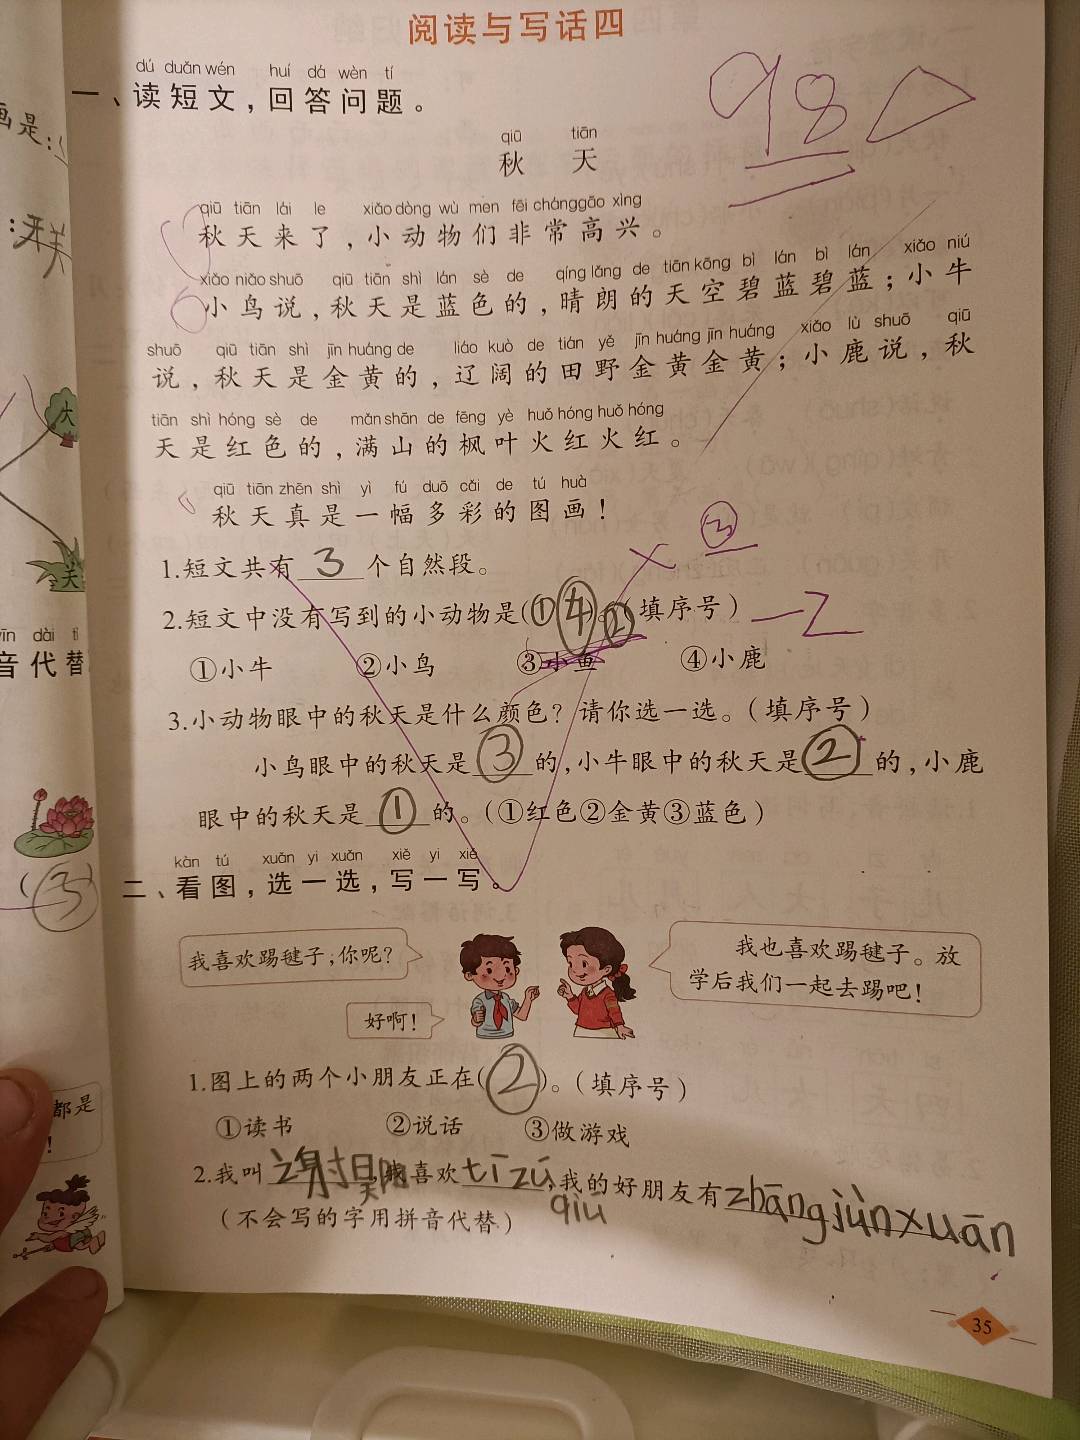 阅读与写话四
98
dú duǎn wén huí dá wèn tí
一、读短文，回答问题。
qiū tiān
秋 天
qiū tiān lái le xiǎo dòng wù men fēi cháng gāo xìng
秋天来了，小动物们非常高兴。
xiǎo niǎo shuō qiū tiān shì lán sè de qíng lǎng de tiān kōng bì lán bì lán xiǎo niú
小鸟说，秋天是蓝色的，晴朗的天空碧蓝碧蓝；小牛
shuō qiū tiān shì jīn huáng de liáo kuò de tián yě jīn huáng jīn huáng xiǎo lù shuō qiū
说，秋天是金黄的，辽阔的田野金黄金黄；小鹿说，秋
tiān shì hóng sè de mǎn shān de fēng yè huǒ hóng huǒ hóng
天是红色的，满山的枫叶火红火红。
qiū tiān zhēn shì yì fú duō cǎi de tú huà
秋天真是一幅多彩的图画！
③
1.短文共有 3 个自然段。
2.短文中没有写到的小动物是(①④②)。(填序号) -2
①小牛 ②小鸟 ③小鱼 ④小鹿
3.小动物眼中的秋天是什么颜色？请你选一选。(填序号)
小鸟眼中的秋天是 ③ 的，小牛眼中的秋天是 ② 的，小鹿
眼中的秋天是 ① 的。(①红色②金黄③蓝色)
kàn tú xuǎn yi xuǎn xiě yi xiě
二、看图，选一选，写一写。
我喜欢踢毽子，你呢？
好啊！
我也喜欢踢毽子。放
学后我们一起去踢吧！
1.图上的两个小朋友正在(②)。(填序号)
①读书 ②说话 ③做游戏
2.我叫 ，我喜欢 tī zú qiú，我的好朋友有 zhāng jùn xuān
(不会写的字用拼音代替)
35
画是：
大
关
yīn dài tì
音代替
(③)
都是
！